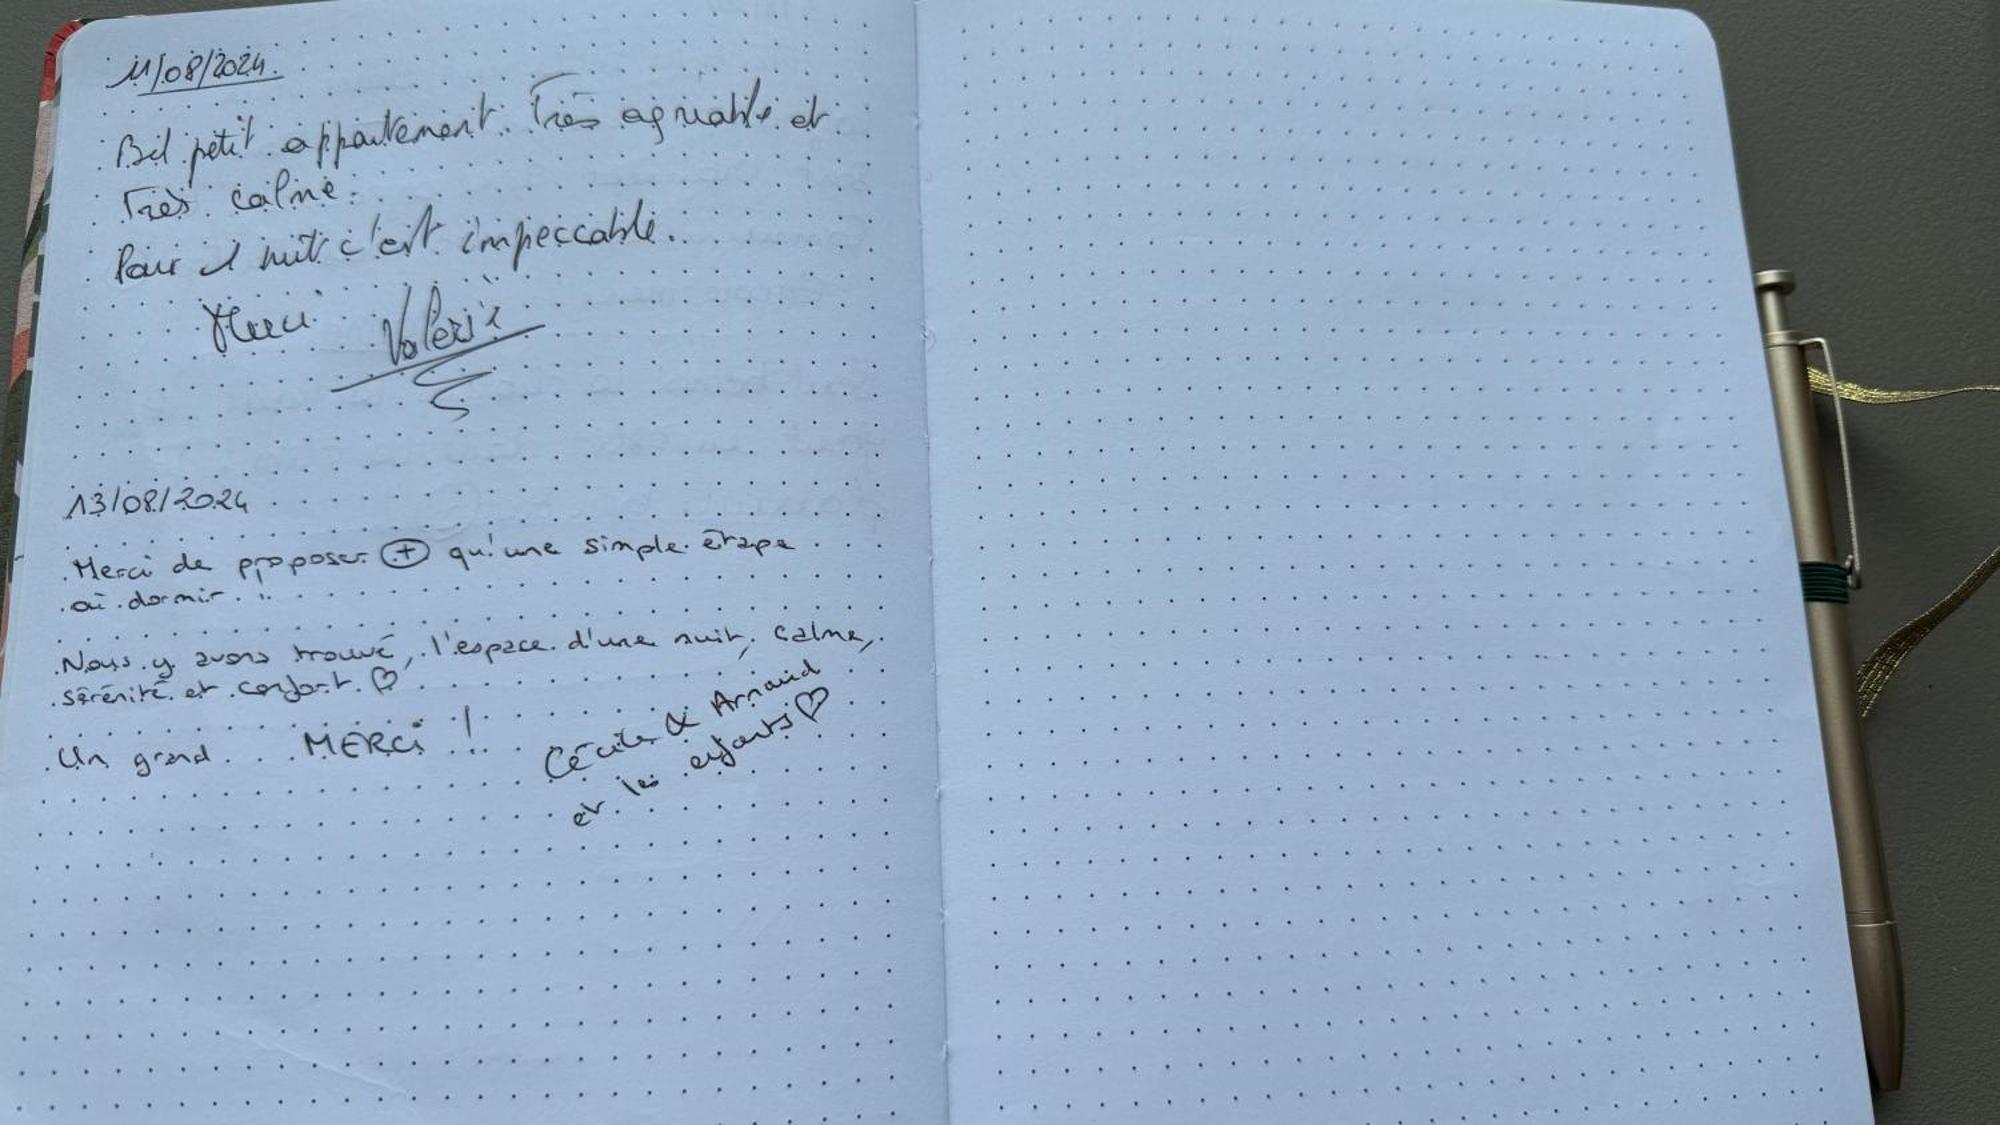 11/08/2024.
Bel petit appartement. Très agréable et
Très calme.
Pour 1 nuit c'est impeccable.
Merci Valérie
13/08/2024
Merci de proposer + qu'une simple étape
où dormir...
Nous y avons trouvé, l'espace d'une nuit, calme,
sérénité et confort. ♡
Un grand MERCi !
Cécile & Arnaud
et les enfants ♡